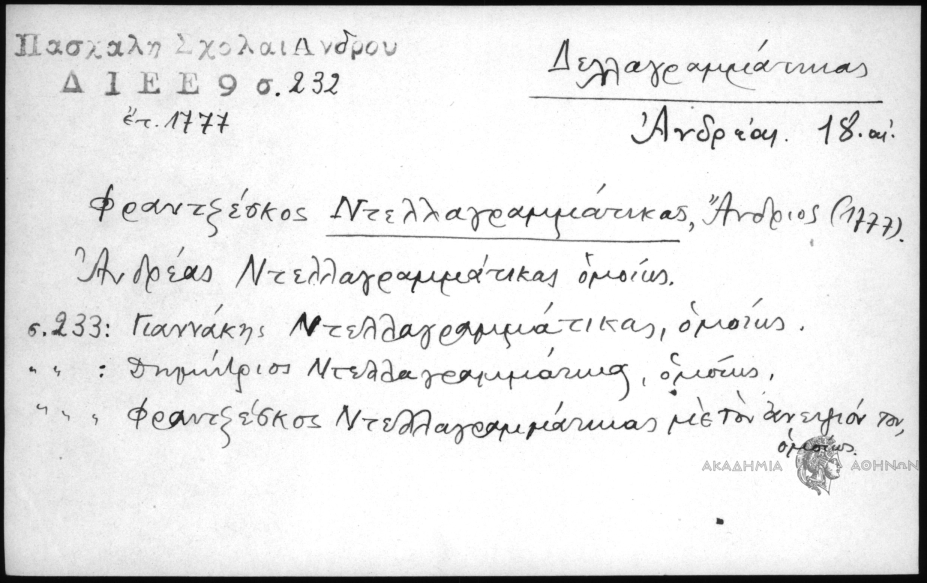 Πασχαλη Σχολαι Ανδρου
Δ Ι Ε Ε 9 σ. 232
ἔτ. 1777
Δελλαγραμμάτικας
Ἀνδρέας. 18. αἰ.
Φραντζέσκος Ντελλαγραμμάτικας, Ἄνδριος (1777).
Ἀνδρέας Ντελλαγραμμάτικας ὁμοίως.
σ. 233: Γιαννάκης Ντελλαγραμμάτικας, ὁμοίως.
" " : Δημήτριος Ντελλαγραμμάτικας, ὁμοίως,
" " , Φραντζέσκος Ντελλαγραμμάτικας μὲ τὸν ἀνεψιόν του,
ὁμοίως.
ΑΚΑΔΗΜΙΑ ΑΘΗΝΩΝ